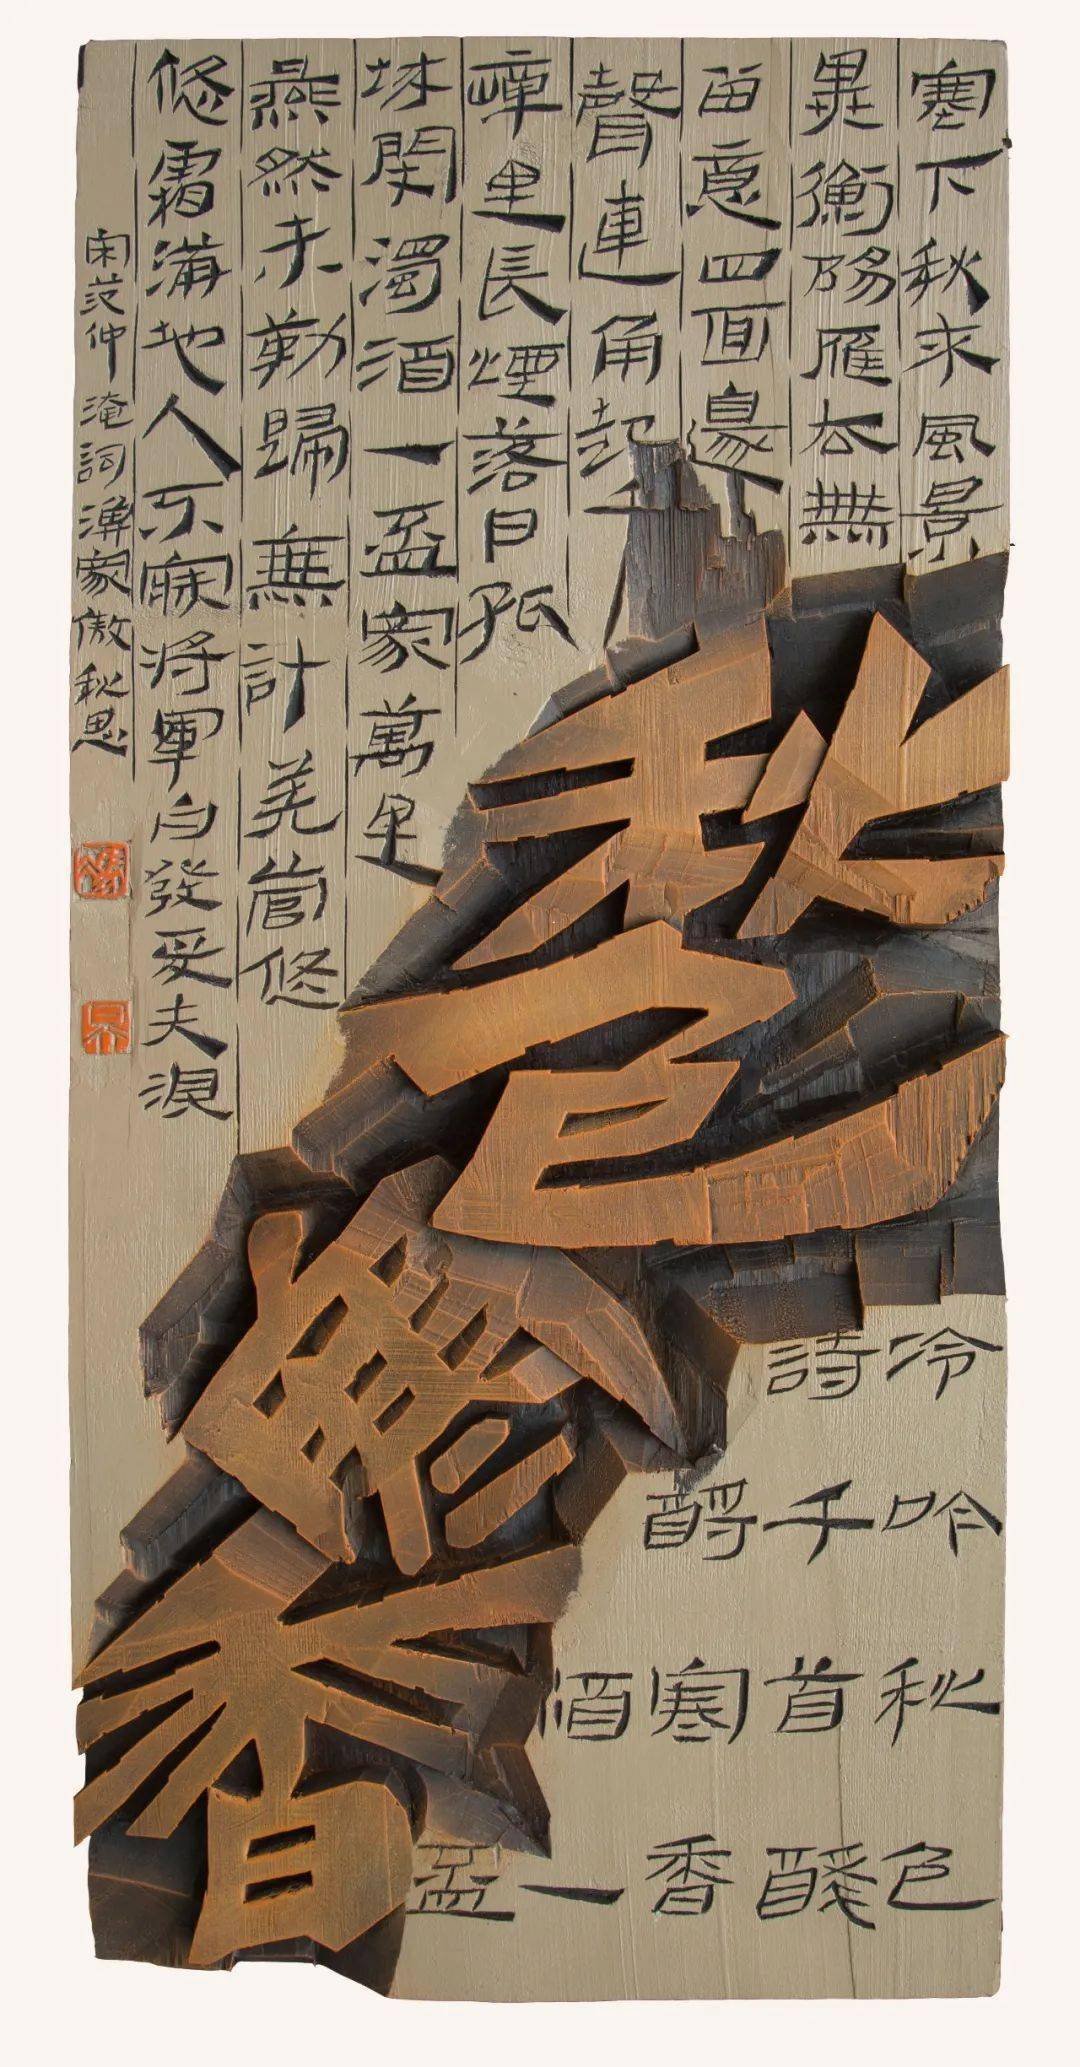 塞下秋來風景
異衡陽雁去無
留意四面邊
聲連角起
嶂里長煙落日孤
城閉濁酒一盃家萬里
燕然未勒歸無計羌管悠
悠霜滿地人不寐將軍白發夫淚
宋范仲淹詞漁家傲秋思
秋色寒香
冷吟秋色
詩千首醉
酹寒香
酒一
盃